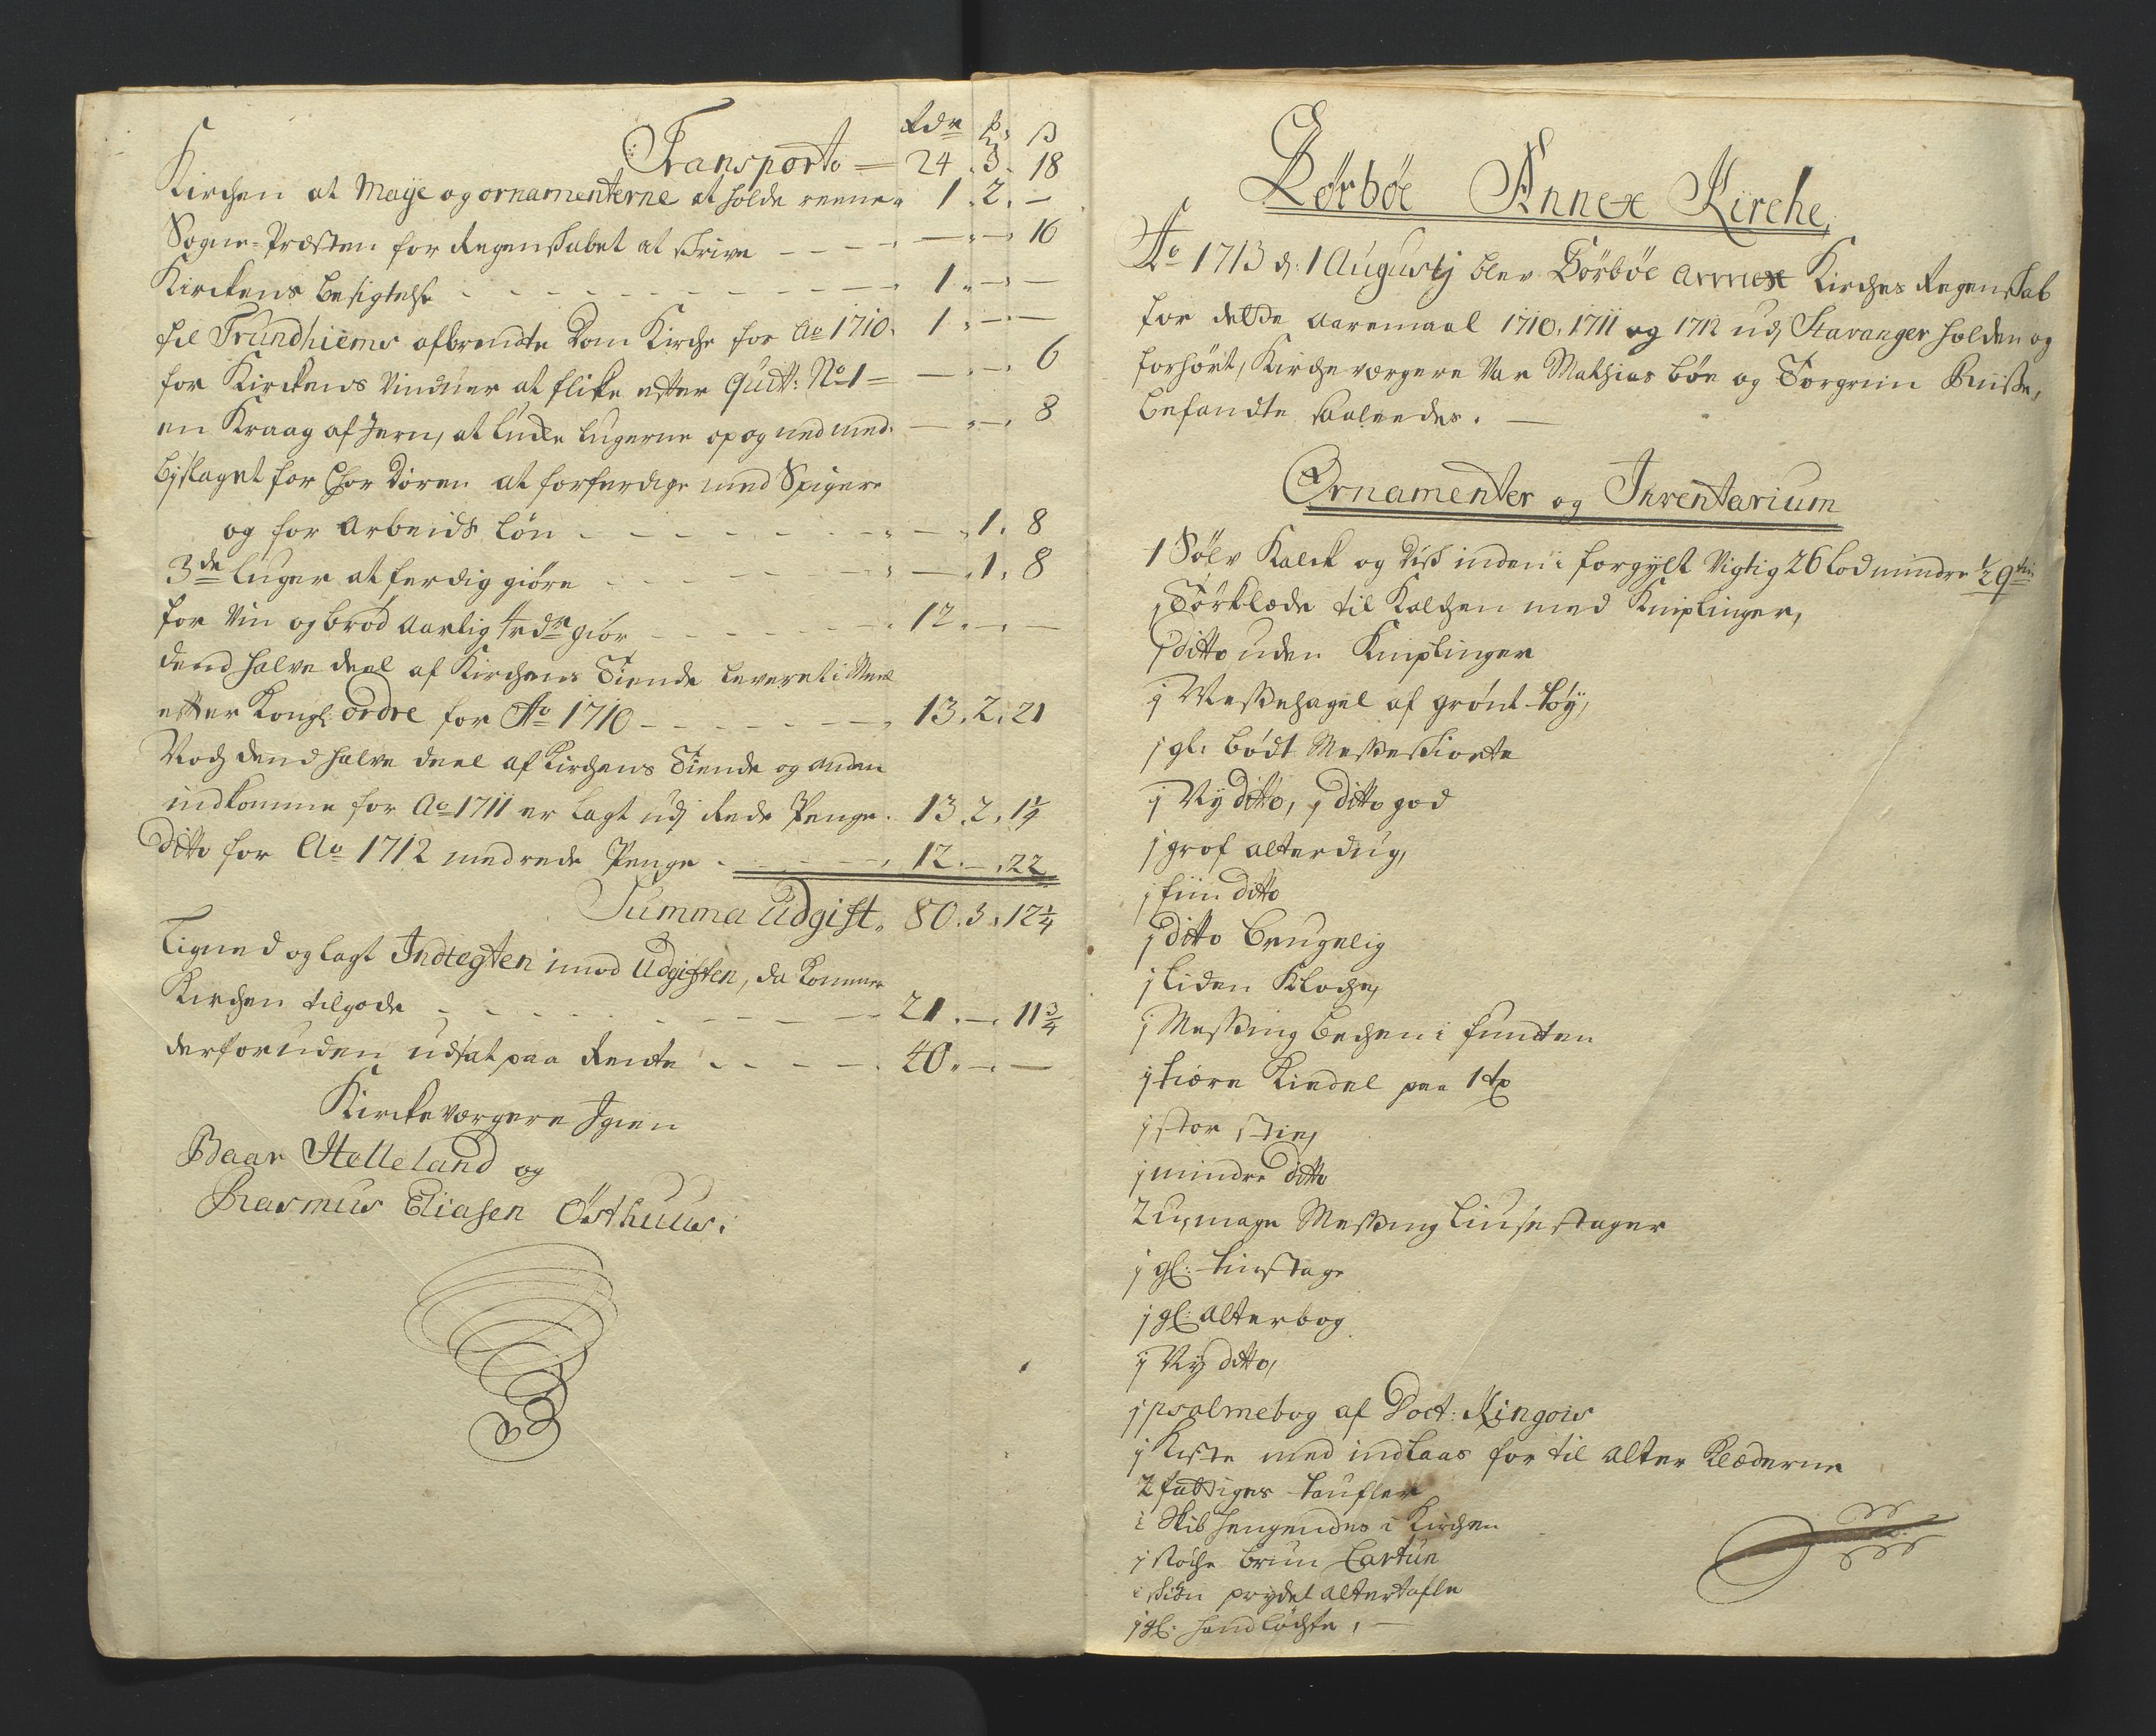 Rdr ß
Transporto = 24 . 3 . 18
Kirchen at Maye og ornamenterne at holde reene 1 . 2 . —
Sogne-Præsten for Regenskabet at skrive — . — . 16
Kirckens besigtelse 1 . — . —
til Trundhiems afbrendte Dom Kirche for Ao 1710 . 1 . — . —
for Kirckens Vinduer at flike efter Quitt: No 1 = — . — . 6
en Kraag af Jern, at lucke lugerne op og ned med . — . — . 8
byslaget for Chor Dören at forferdige med Spiger
og for Arbeids lön — . 1 . 8
3de luger at ferdig giöre — . 1 . 8
for Vin og bröd Aarlig 4 rdr giör 12 . — . —
dend halve deel af Kirchens Tiende leveret i Meel
efter Kongl: ordre for Ao 1710 13 . 2 . 21
Noch dend halve deel af Kirchens Tiende og anden
indkomme for Ao 1711 er lagt udj Rede Penge . 13 . 2 . 1¼
Ditto for Ao 1712 med rede Penge 12 . — . 22
Summa Udgift . 80 . 3 . 12¼
Ligned og lagt Indtegten imod Udgiften, da kommer
Kirchen tilgode 21 . — . 11¾
derforuden udsat paa Rente 40 . — . —
Kirckeværgere Igien
Baar Helleland og
Rasmus Eliasen Östhuus .
Sörböe Annex Kirche,
Ao 1713 d: 1 Augustj blev Sörböe annex Kirches Regenskab
for dette aaremaal 1710, 1711 og 1712 udj Stavanger holden og
forhört, Kirche værgere Var Mathias böe og Torgrim
befandtes saaledes .
Ornamenter og Inventarium
1 Sölv Kalck og Disk inden i forgylt Vigtig 26 lod mindre ½ qtin
1 Törklæde til Kalchen med Kniplinger,
1 ditto uden Kniplinger
j Messehagel af grönt töy,
j gl. bödt Messeskiorte
j Ny ditto, j ditto god
j grof alterdug,
j fiin ditto
j ditto brugelig
j liden Klocke,
j Messing bechen i funten
j tiære Kiedel paa 1
j stor stie,
j mindre ditto
2 umage Messing liusestager
j gl: liustage
j gl: alterbog
j Ny ditto,
j psalmebog af Doct: Kingois
j Kiste med indlaas for til alter Klæderne
2 fattiges taufler
i Skib hengendes i Kirchen
j stöche brun Cartun
i skiön prydet altertafle
j gl: hand löchte, —